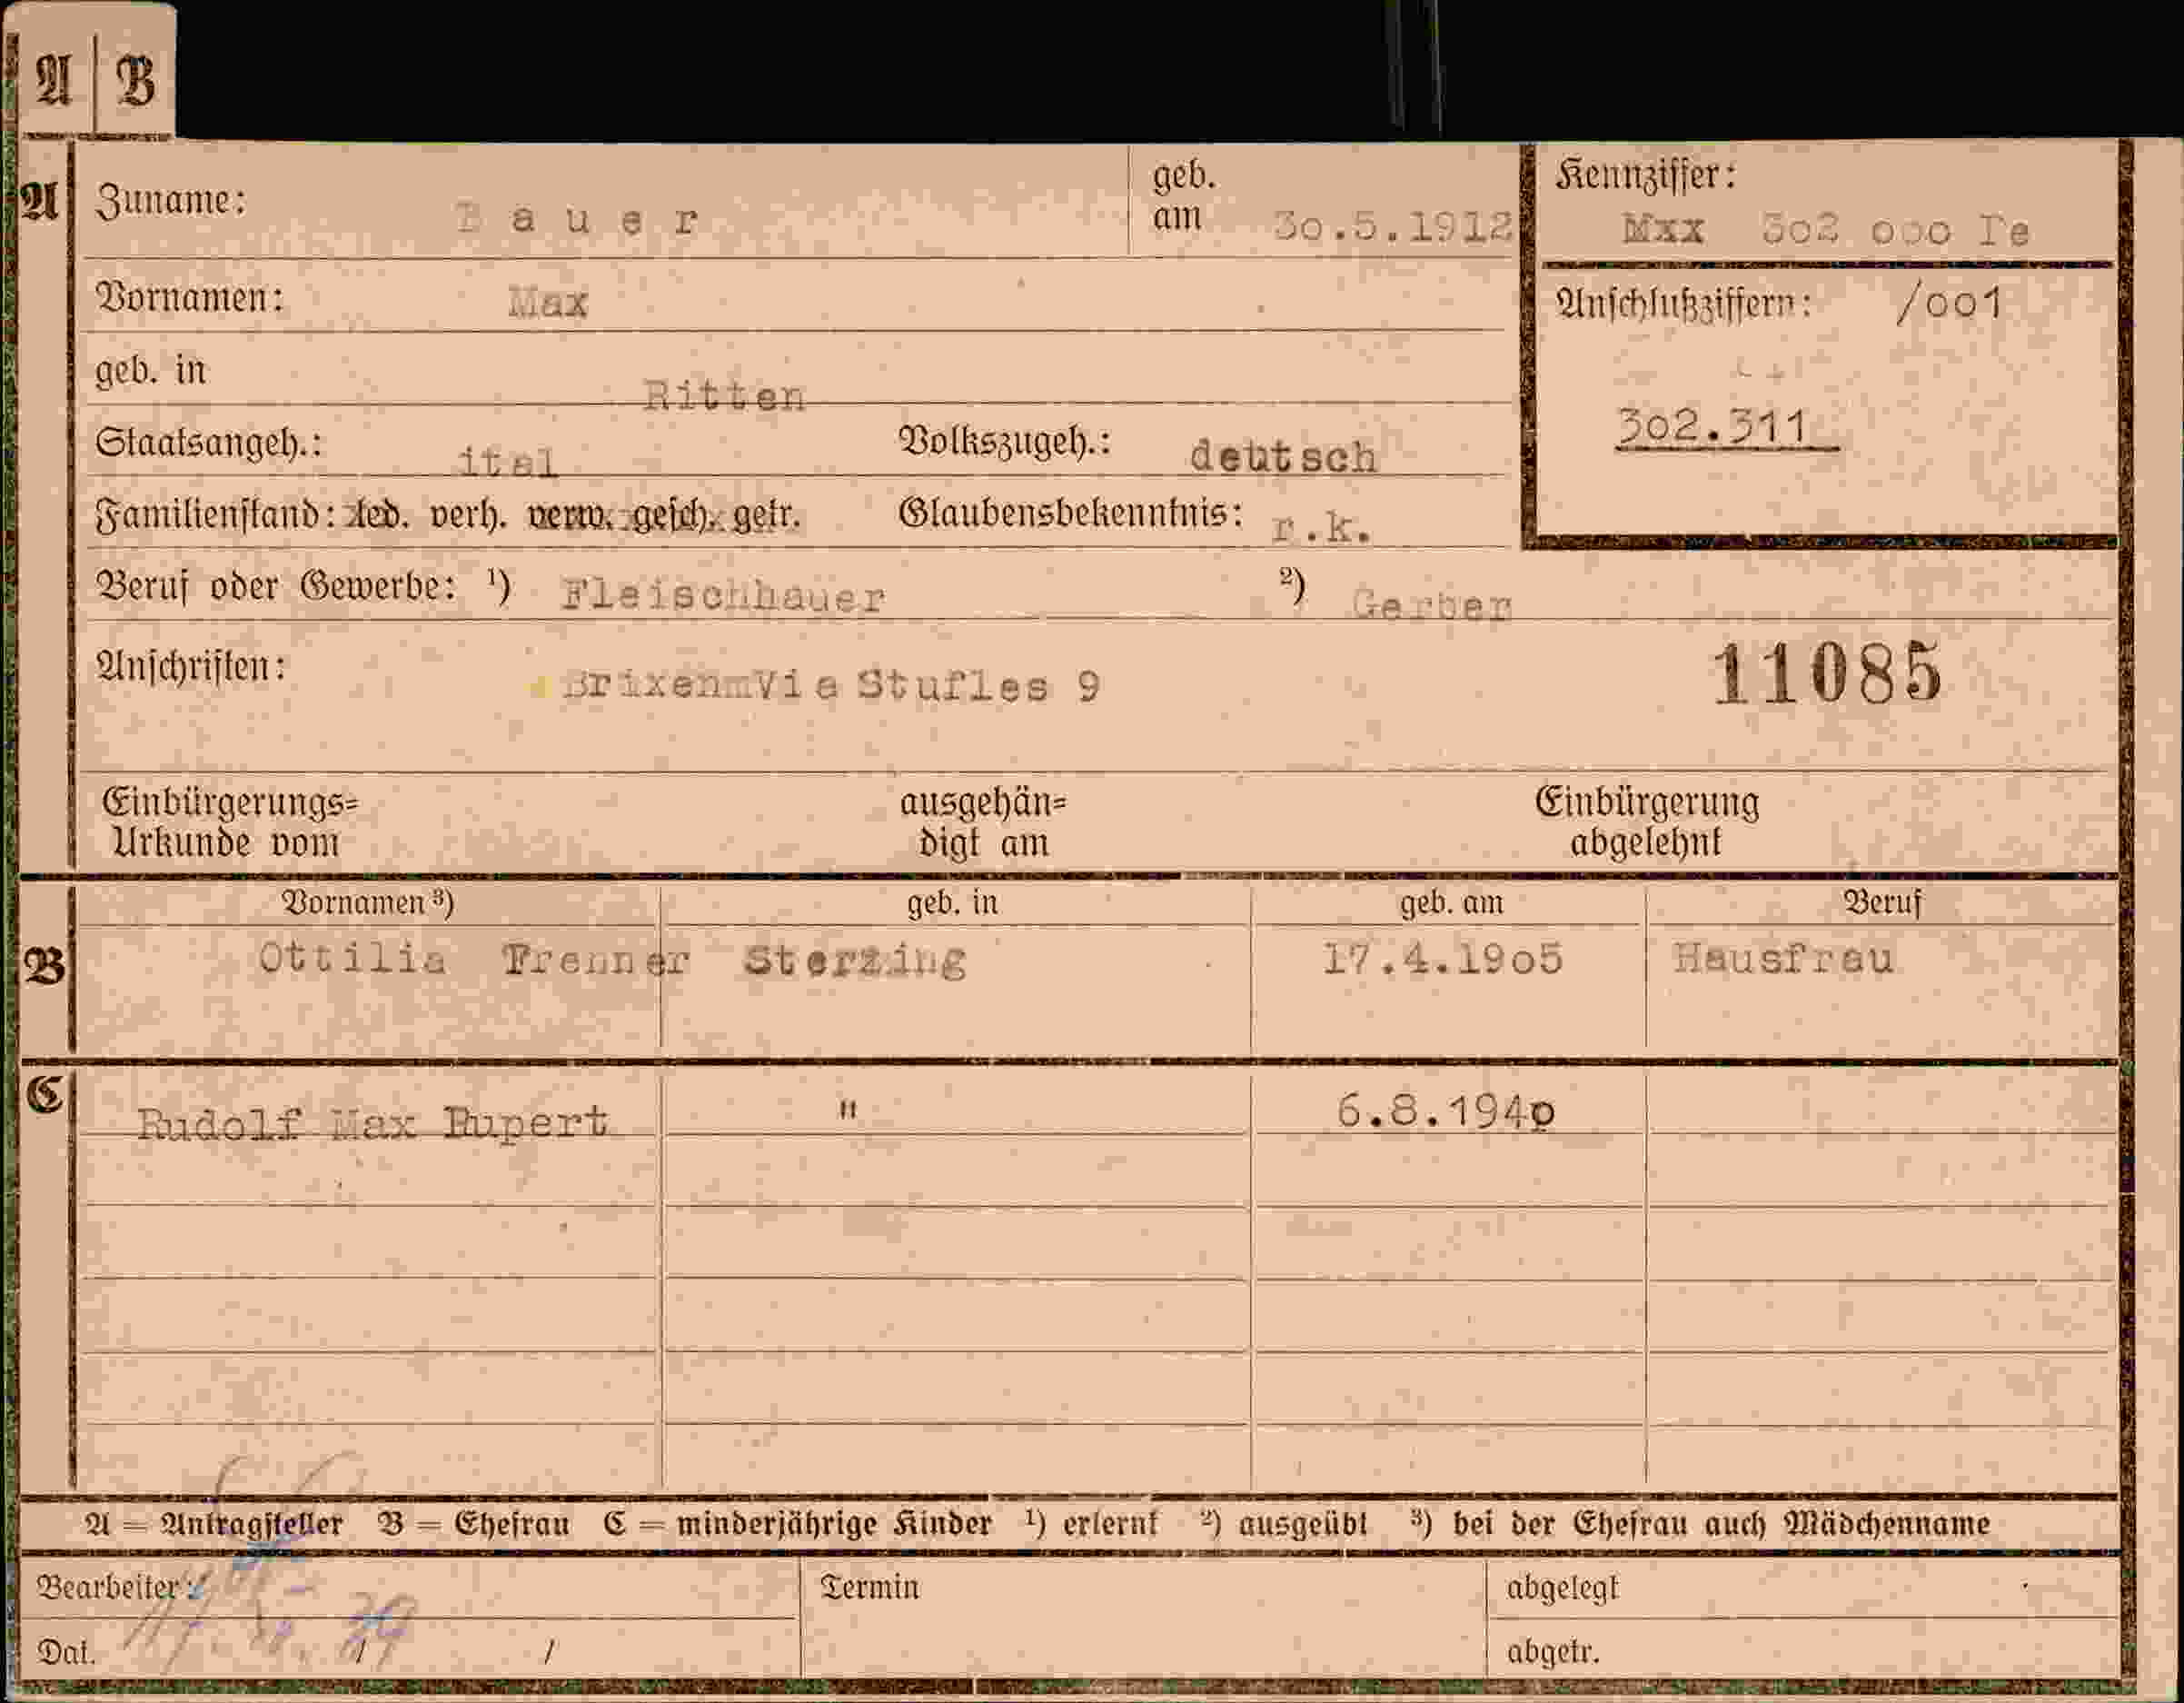 A B
A Zuname: Bauer geb. am 30.5.1912 Kennziffer: Mxx 302 000 Te
Vornamen: Max Anschlußziffern: /001
geb. in Ritten
302.311
Staatsangeh.: ital Volkszugeh.: deutsch
Familienstand: led. verh. verw. gesch. getr. Glaubensbekenntnis: r.k.
Beruf oder Gewerbe: 1) Fleischhauer 2) Gerber
Anschriften: Brixen Via Stufles 9 11085
Einbürgerungs= ausgehän= Einbürgerung
Urkunde vom digt am abgelehnt
Vornamen 3) geb. in geb. am Beruf
B Ottilia Frenner Sterzing 17.4.1905 Hausfrau
C Rudolf Max Rupert " 6.8.1940
A = Antragsteller B = Ehefrau C = minderjährige Kinder 1) erlernt 2) ausgeübt 3) bei der Ehefrau auch Mädchenname
Bearbeiter: Termin abgelegt
Dat. 39 / abgetr.